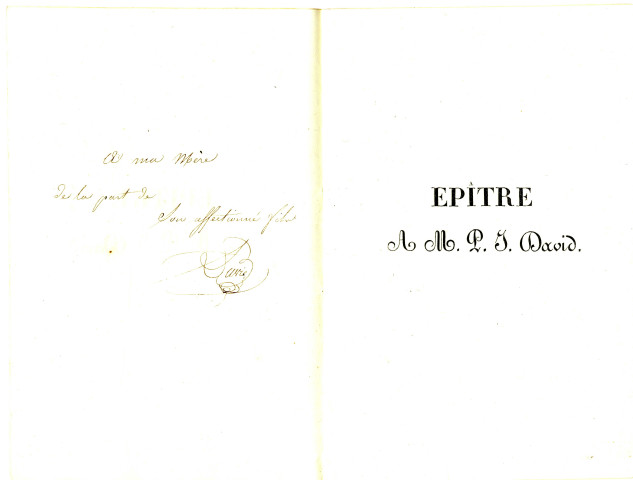 A ma Mère
de la part de
Son affectionné fils
EPÎTRE
A M. P. J. David.